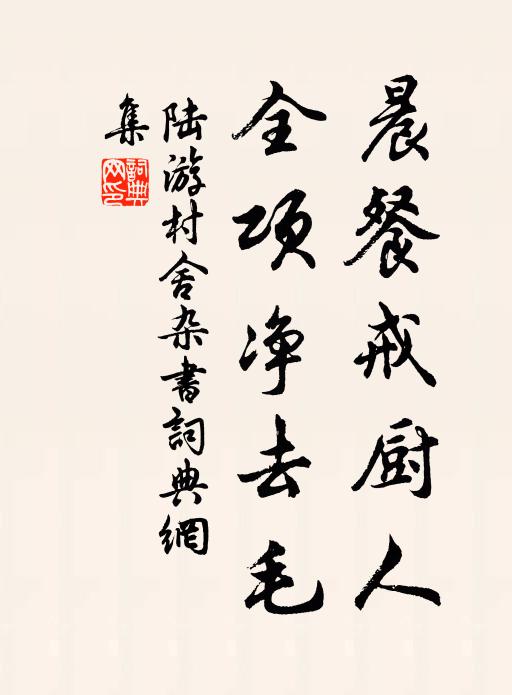 晨餐戒厨人
全项净去毛
陆游村舍杂書詞典網
集
詞典網印